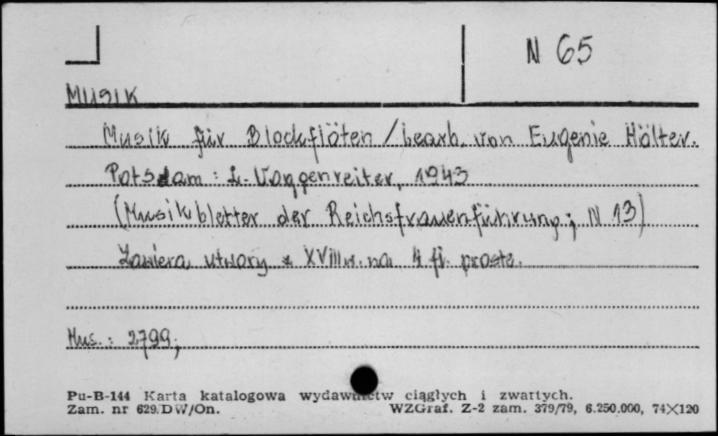 N 65
MUSIK
Musik für Blockflöten / bearb. von Eugenie Hölter.
Potsdam : L. Voggenreiter, 1943
(Musikbletter der Reichsfrauenführung; N 13)
Zawiera utwory z XVIII w. na 4 fl. proste.
Mus.: 2799;
Pu-B-144 Karta katalogowa wydawnictw ciągłych i zwartych.
Zam. nr 629.DW/On. WZGraf. Z-2 zam. 379/79, 6.250.000, 74×120